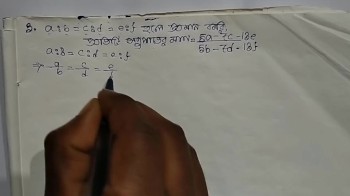 3. a:b = c:d = e:f হলে প্রমাণ করি,
প্রতিটি অনুপাতের মান = 5a-7c-13e / 5b-7d-13f
a:b = c:d = e:f
⇒ a/b = c/d = e/f